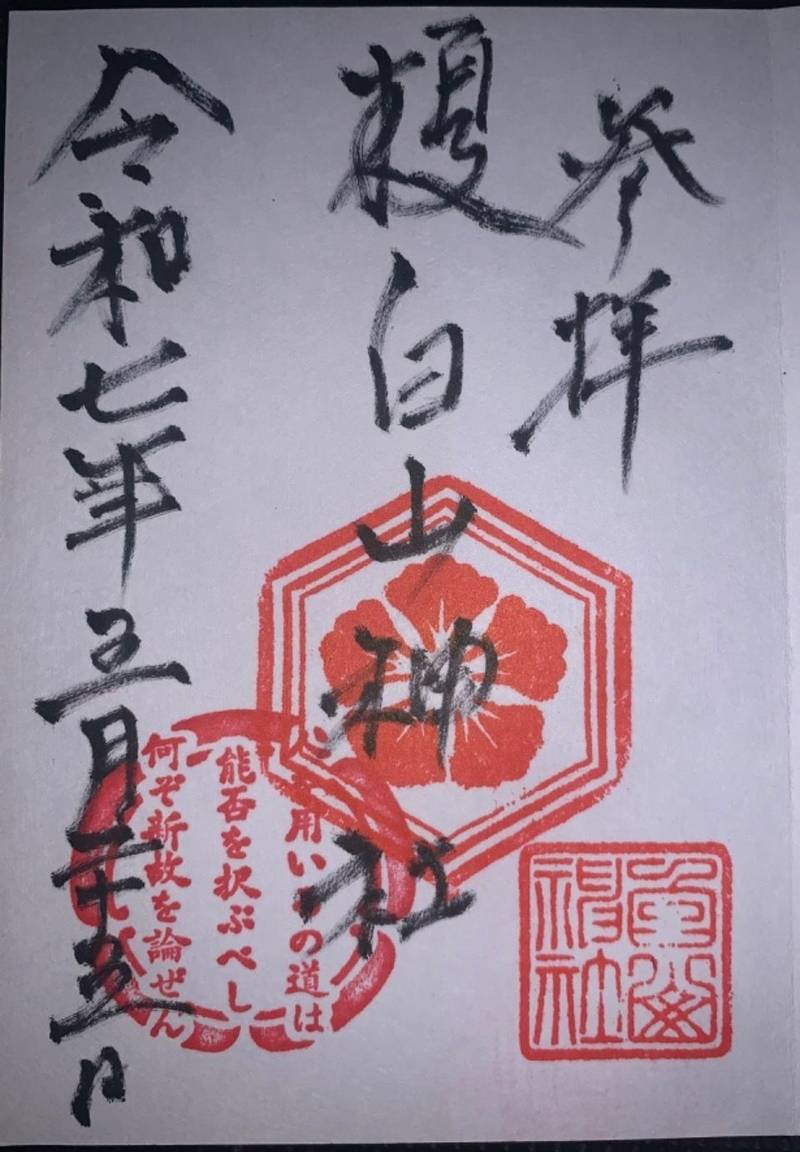 参拝
榎白山神社
令和七年五月二十五日
人を用いるの道は
能否を択ぶべし
何ぞ新故を論ぜん
白山
神社